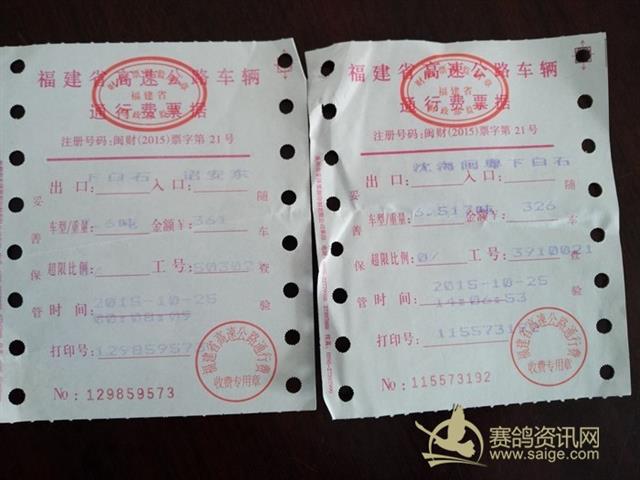 福建省高速公路车辆
通行费票据
福建省
注册号码:闽财(2015)票字第21号
出口: 下白石 入口: 诏安东
车型/重量: 6吨 金额¥: 361
超限比例: 工号: 503021
时间: 2015-10-25
00:08:05
打印号: 12985957
妥善保管
随车查验
福建省高速公路通行费
收费专用章
No: 129859573
福建省高速公路车辆
通行费票据
福建省
注册号码:闽财(2015)票字第21号
沈海闽粤下白石
出口: 入口:
车型/重量: 6.517吨 金额¥: 326
超限比例: 0/ 工号: 3910021
时间: 2015-10-25
14:06:53
打印号: 11557319
妥善保管
随车查验
福建省高速公路通行费
收费专用章
No: 115573192
赛鸽资讯网
www.saige.com